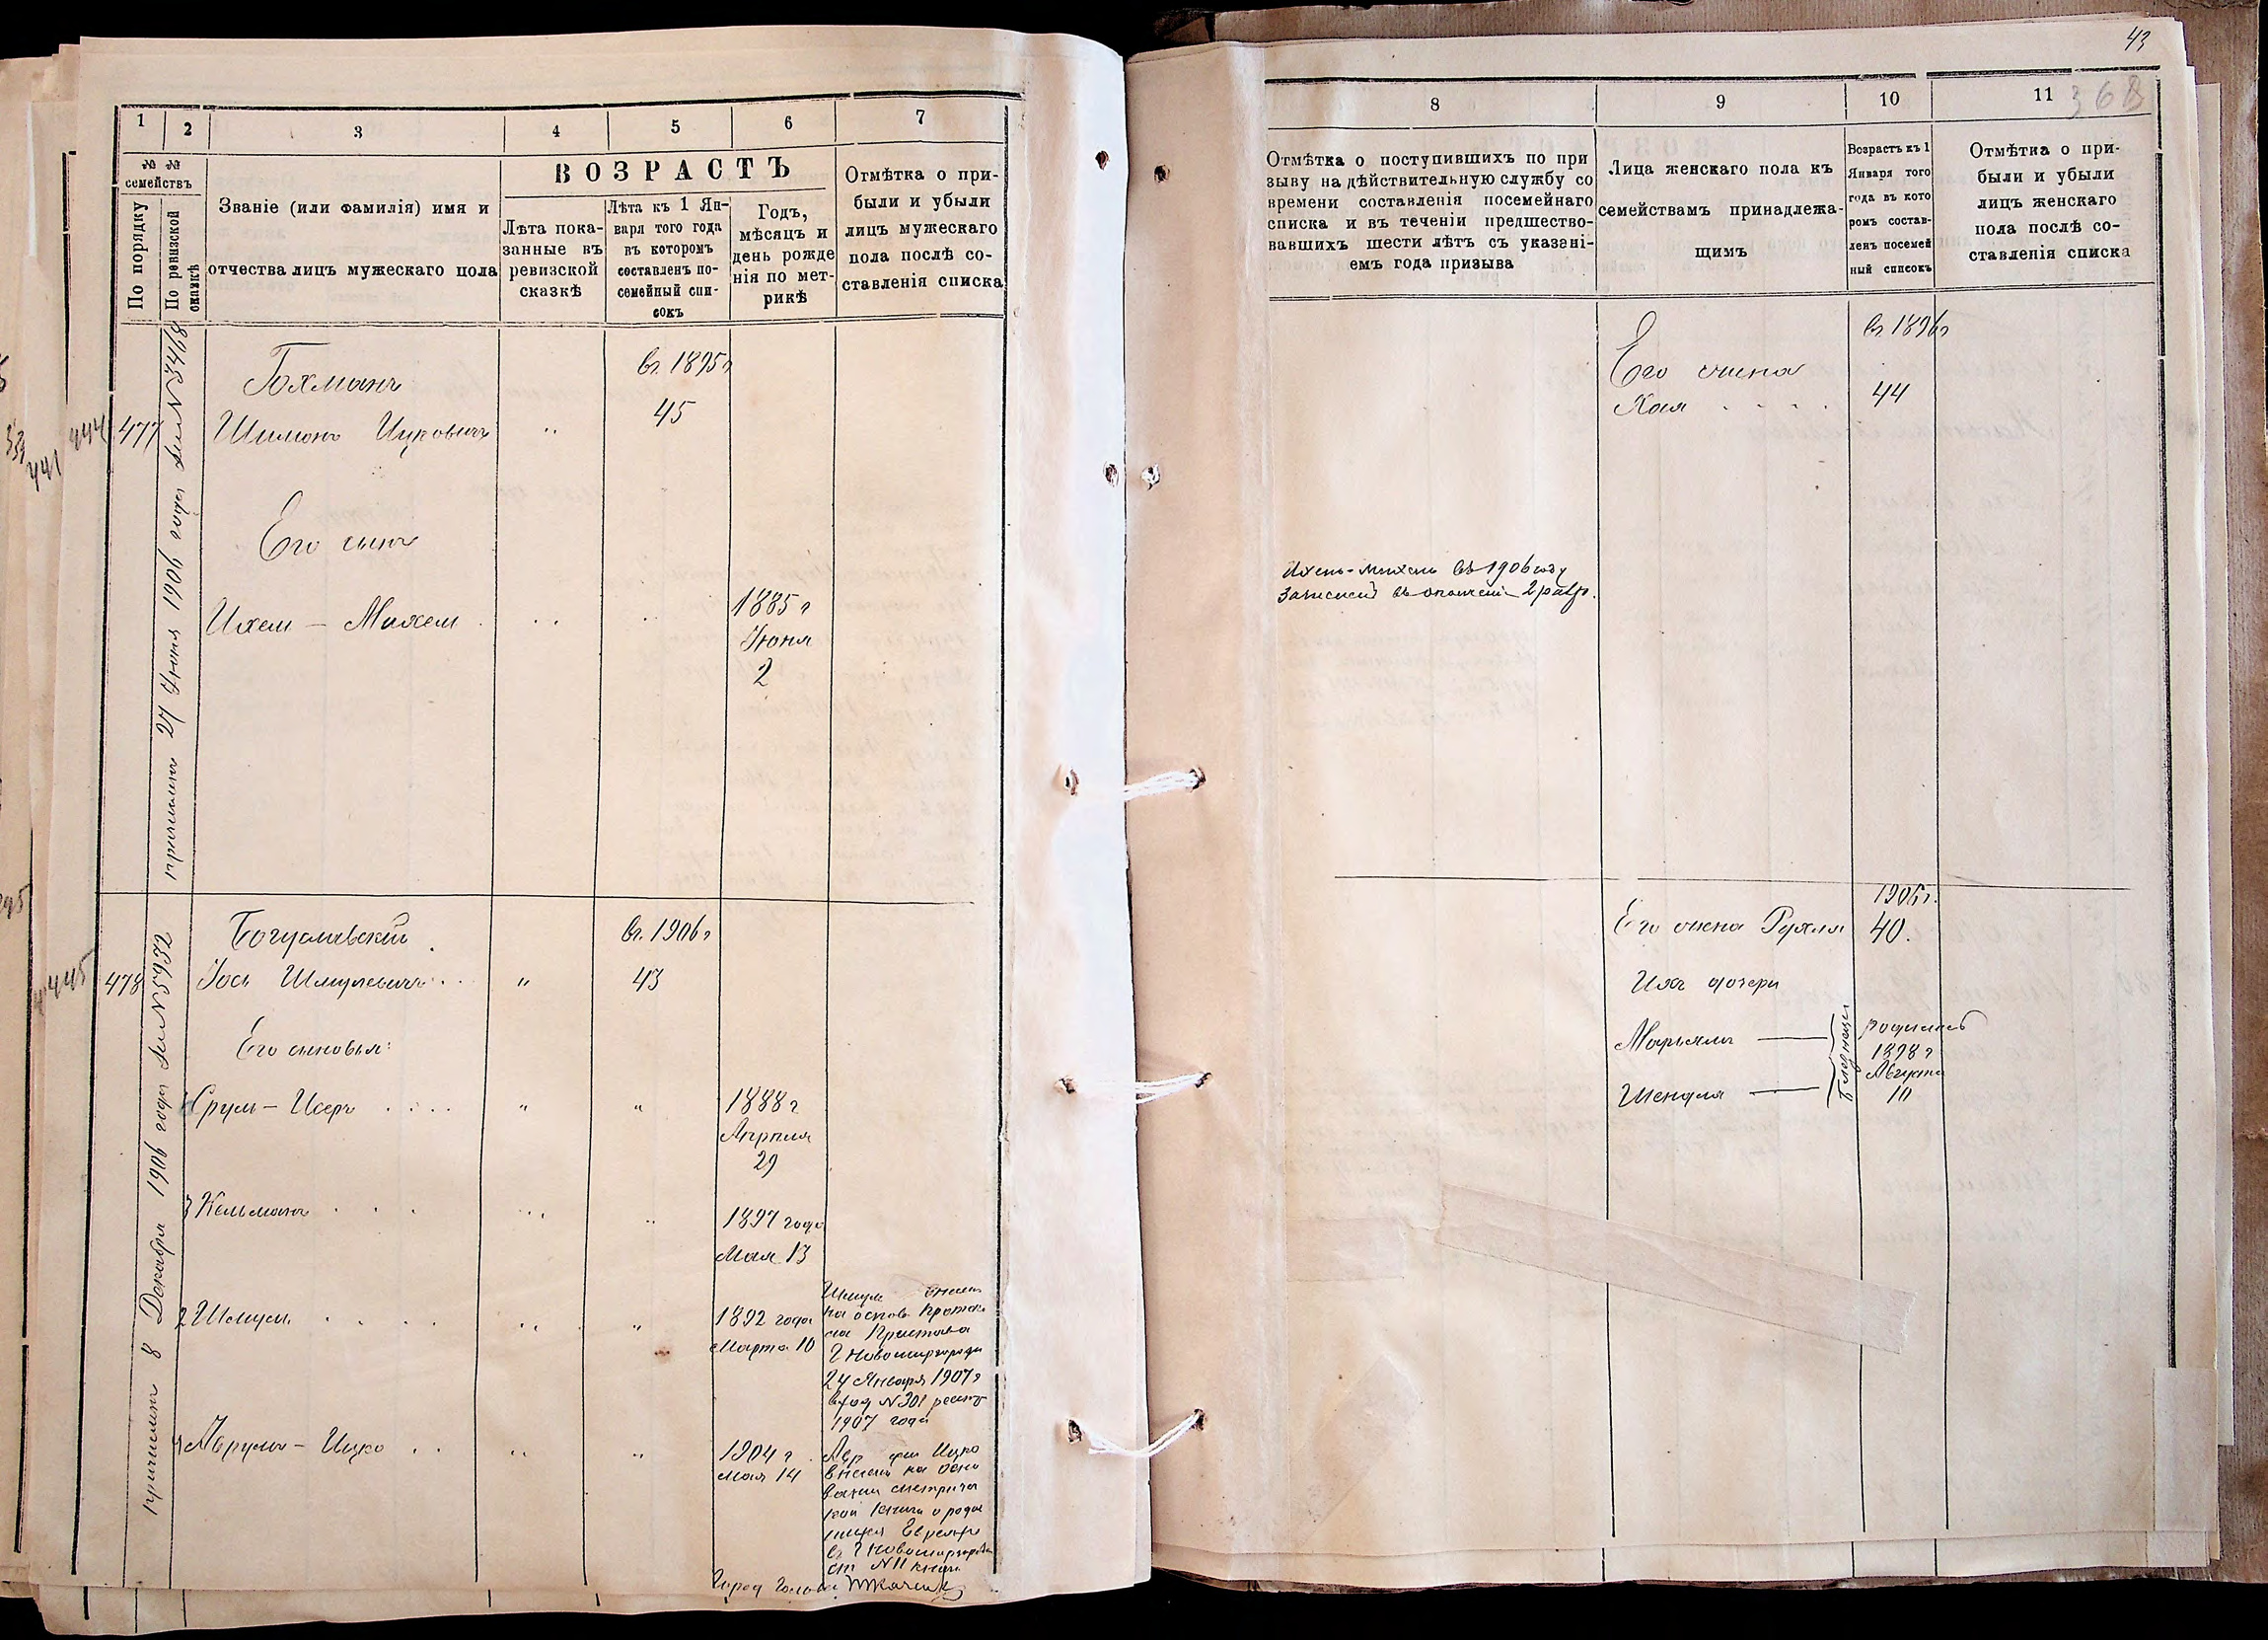 1
2
3
4
5
6
7
№ №
семействъ
По порядку
По ревизской
сказкѣ
Званіе (или фамилія) имя и
отчества лицъ мужескаго пола
ВОЗРАСТЪ
Лѣта пока-
занные въ
ревизской
сказкѣ
Лѣта къ 1 Ян-
варя того года
въ которомъ
составленъ по-
семейный спи-
сокъ
Годъ,
мѣсяцъ и
день рожде
нія по мет-
рикѣ
Отмѣтка о при-
были и убыли
лицъ мужескаго
пола послѣ со-
ставленія списка
444
477
причислинъ 27 Іюня 1906 года №3468
Гохманъ
въ 1895г
Шимонъ Ицковичъ
45
Его сынъ
Ихель - Михель
1885 г
Іюня
2
441
445
478
причислинъ 8 Декабря 1906 года №5932
Богуславскій
въ 1906г
Іось Шмулевичъ
43
Его сыновья:
Срул-Исеръ
1888 г
Апрѣля
29
3 Кельманъ
1897 года
Мая 13
2 Шмуль
1892 года
Марта 10
Шмуль внесенъ
на основ. Проток-
ла Пристава
г Новомиргорода
24 Января 1907г
вход №301
1907 года
4 Аврумъ - Ицко
1904 г
Мая 14
Ицко
внесенъ на осно
ваніи метриче
кой книги о родив
шихся Евреяхъ
въ г Новомиргородѣ
ст №11 книги
Город Голова
43
368
8
9
10
11
Отмѣтка о поступившихъ по при
зыву на дѣйствительную службу со
времени составленія посемейнаго
списка и въ теченіи предшество-
вавшихъ шести лѣтъ съ указані-
емъ года призыва
Лица женскаго пола къ
семействамъ принадлежа-
щимъ
Возрастъ къ 1
Января того
года въ кото
ромъ состав-
ленъ посемей
ный списокъ
Отмѣтка о при-
были и убыли
лицъ женскаго
пола послѣ со-
ставленія списка
въ 1896г
Его жена
Хая
44
Ихель-Михель въ 1906 году
зачисленъ въ ополченіе 2 разр.
1906г.
Его жена Рухля
40.
Ихъ дочери
Марьяля
Шендля
Близнецы
родились
1898 г
Августа
10